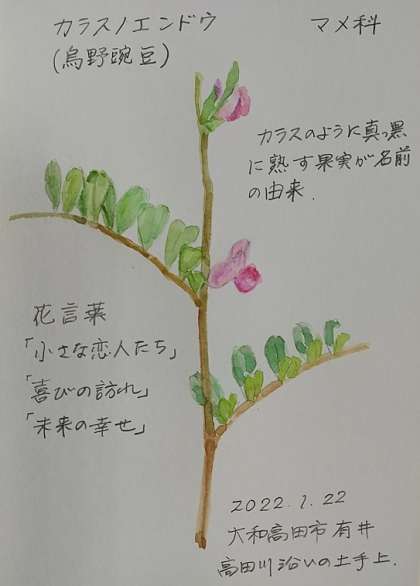 カラスノエンドウ
マメ科
(烏野豌豆)
カラスのように真っ黒
に熟す果実が名前
の由来.
花言葉
「小さな恋人たち」
「喜びの訪れ」
「未来の幸せ」
2022.1.22
大和高田市有井
高田川沿いの土手上.